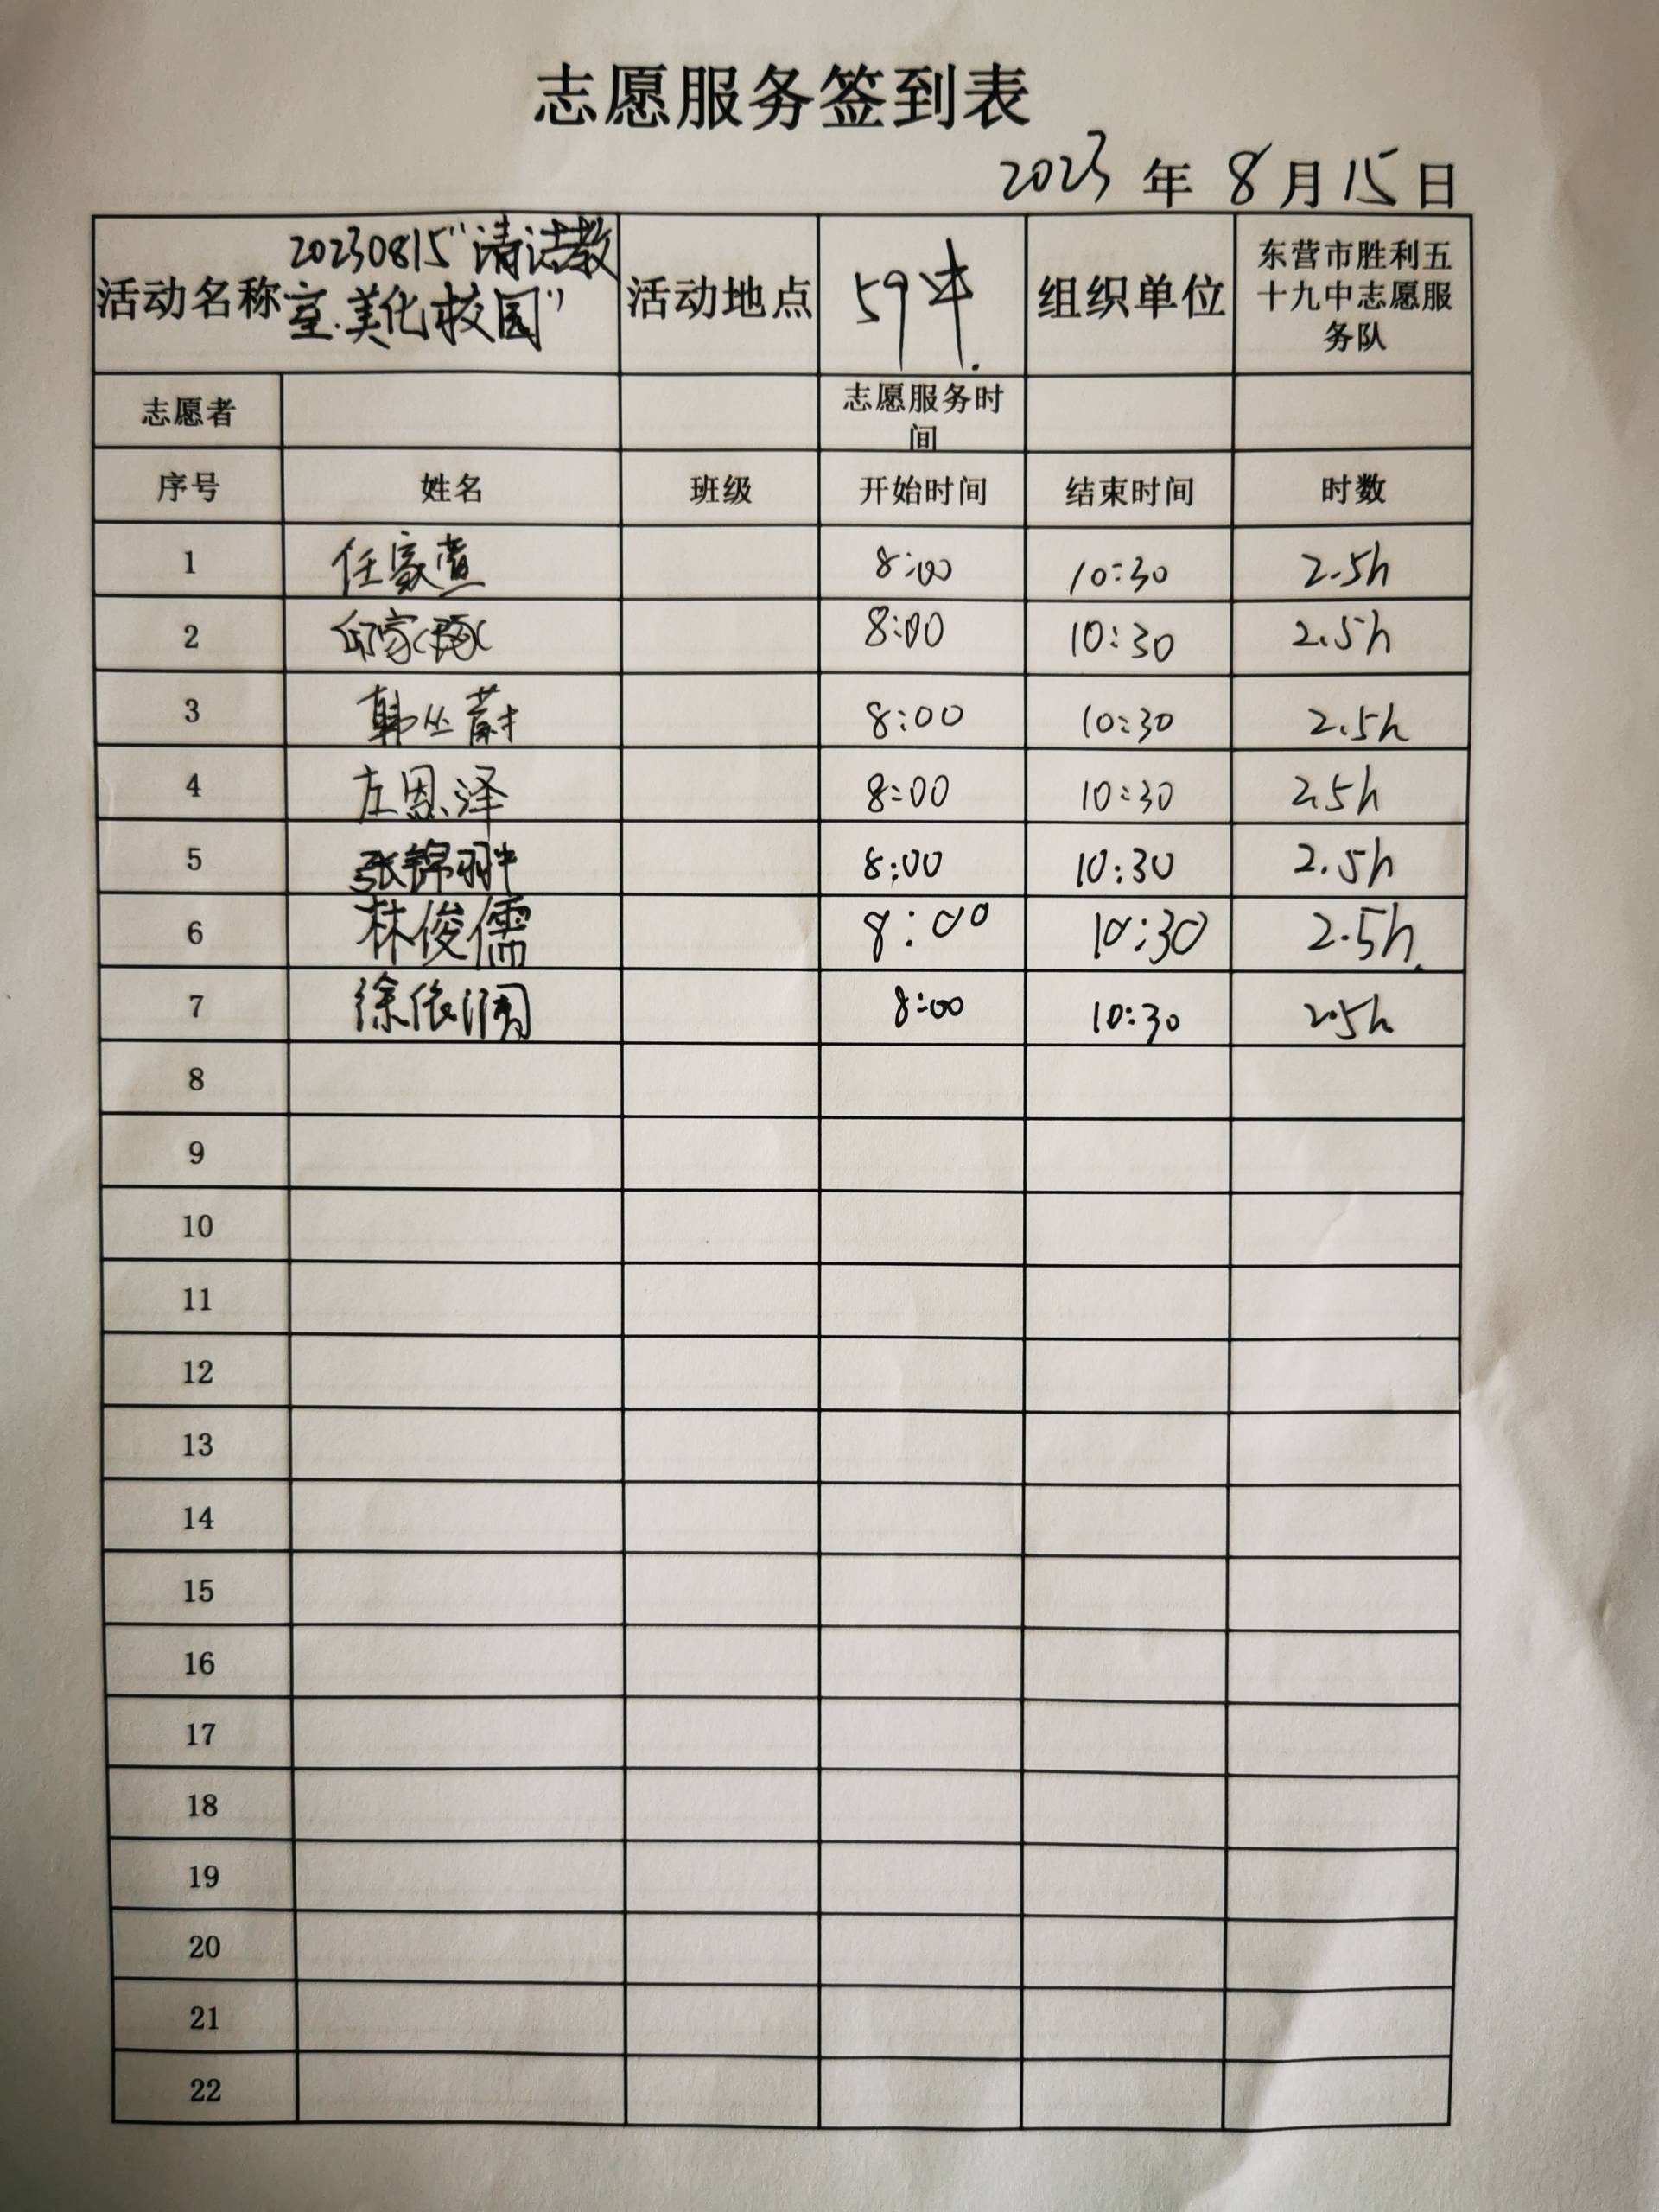 志愿服务签到表
2023 年 8 月 15 日
活动名称 20230815“清洁教室.美化校园” 活动地点 59中. 组织单位 东营市胜利五十九中志愿服务队
志愿者 志愿服务时间
序号 姓名 班级 开始时间 结束时间 时数
1 任家萱 8:00 10:30 2.5h
2 邱家 8:00 10:30 2.5h
3 韩丛蔚 8:00 10:30 2.5h
4 左恩泽 8:00 10:30 2.5h
5 张锦翀 8:00 10:30 2.5h
6 林俊儒 8:00 10:30 2.5h.
7 徐依润 8:00 10:30 2.5h
8
9
10
11
12
13
14
15
16
17
18
19
20
21
22